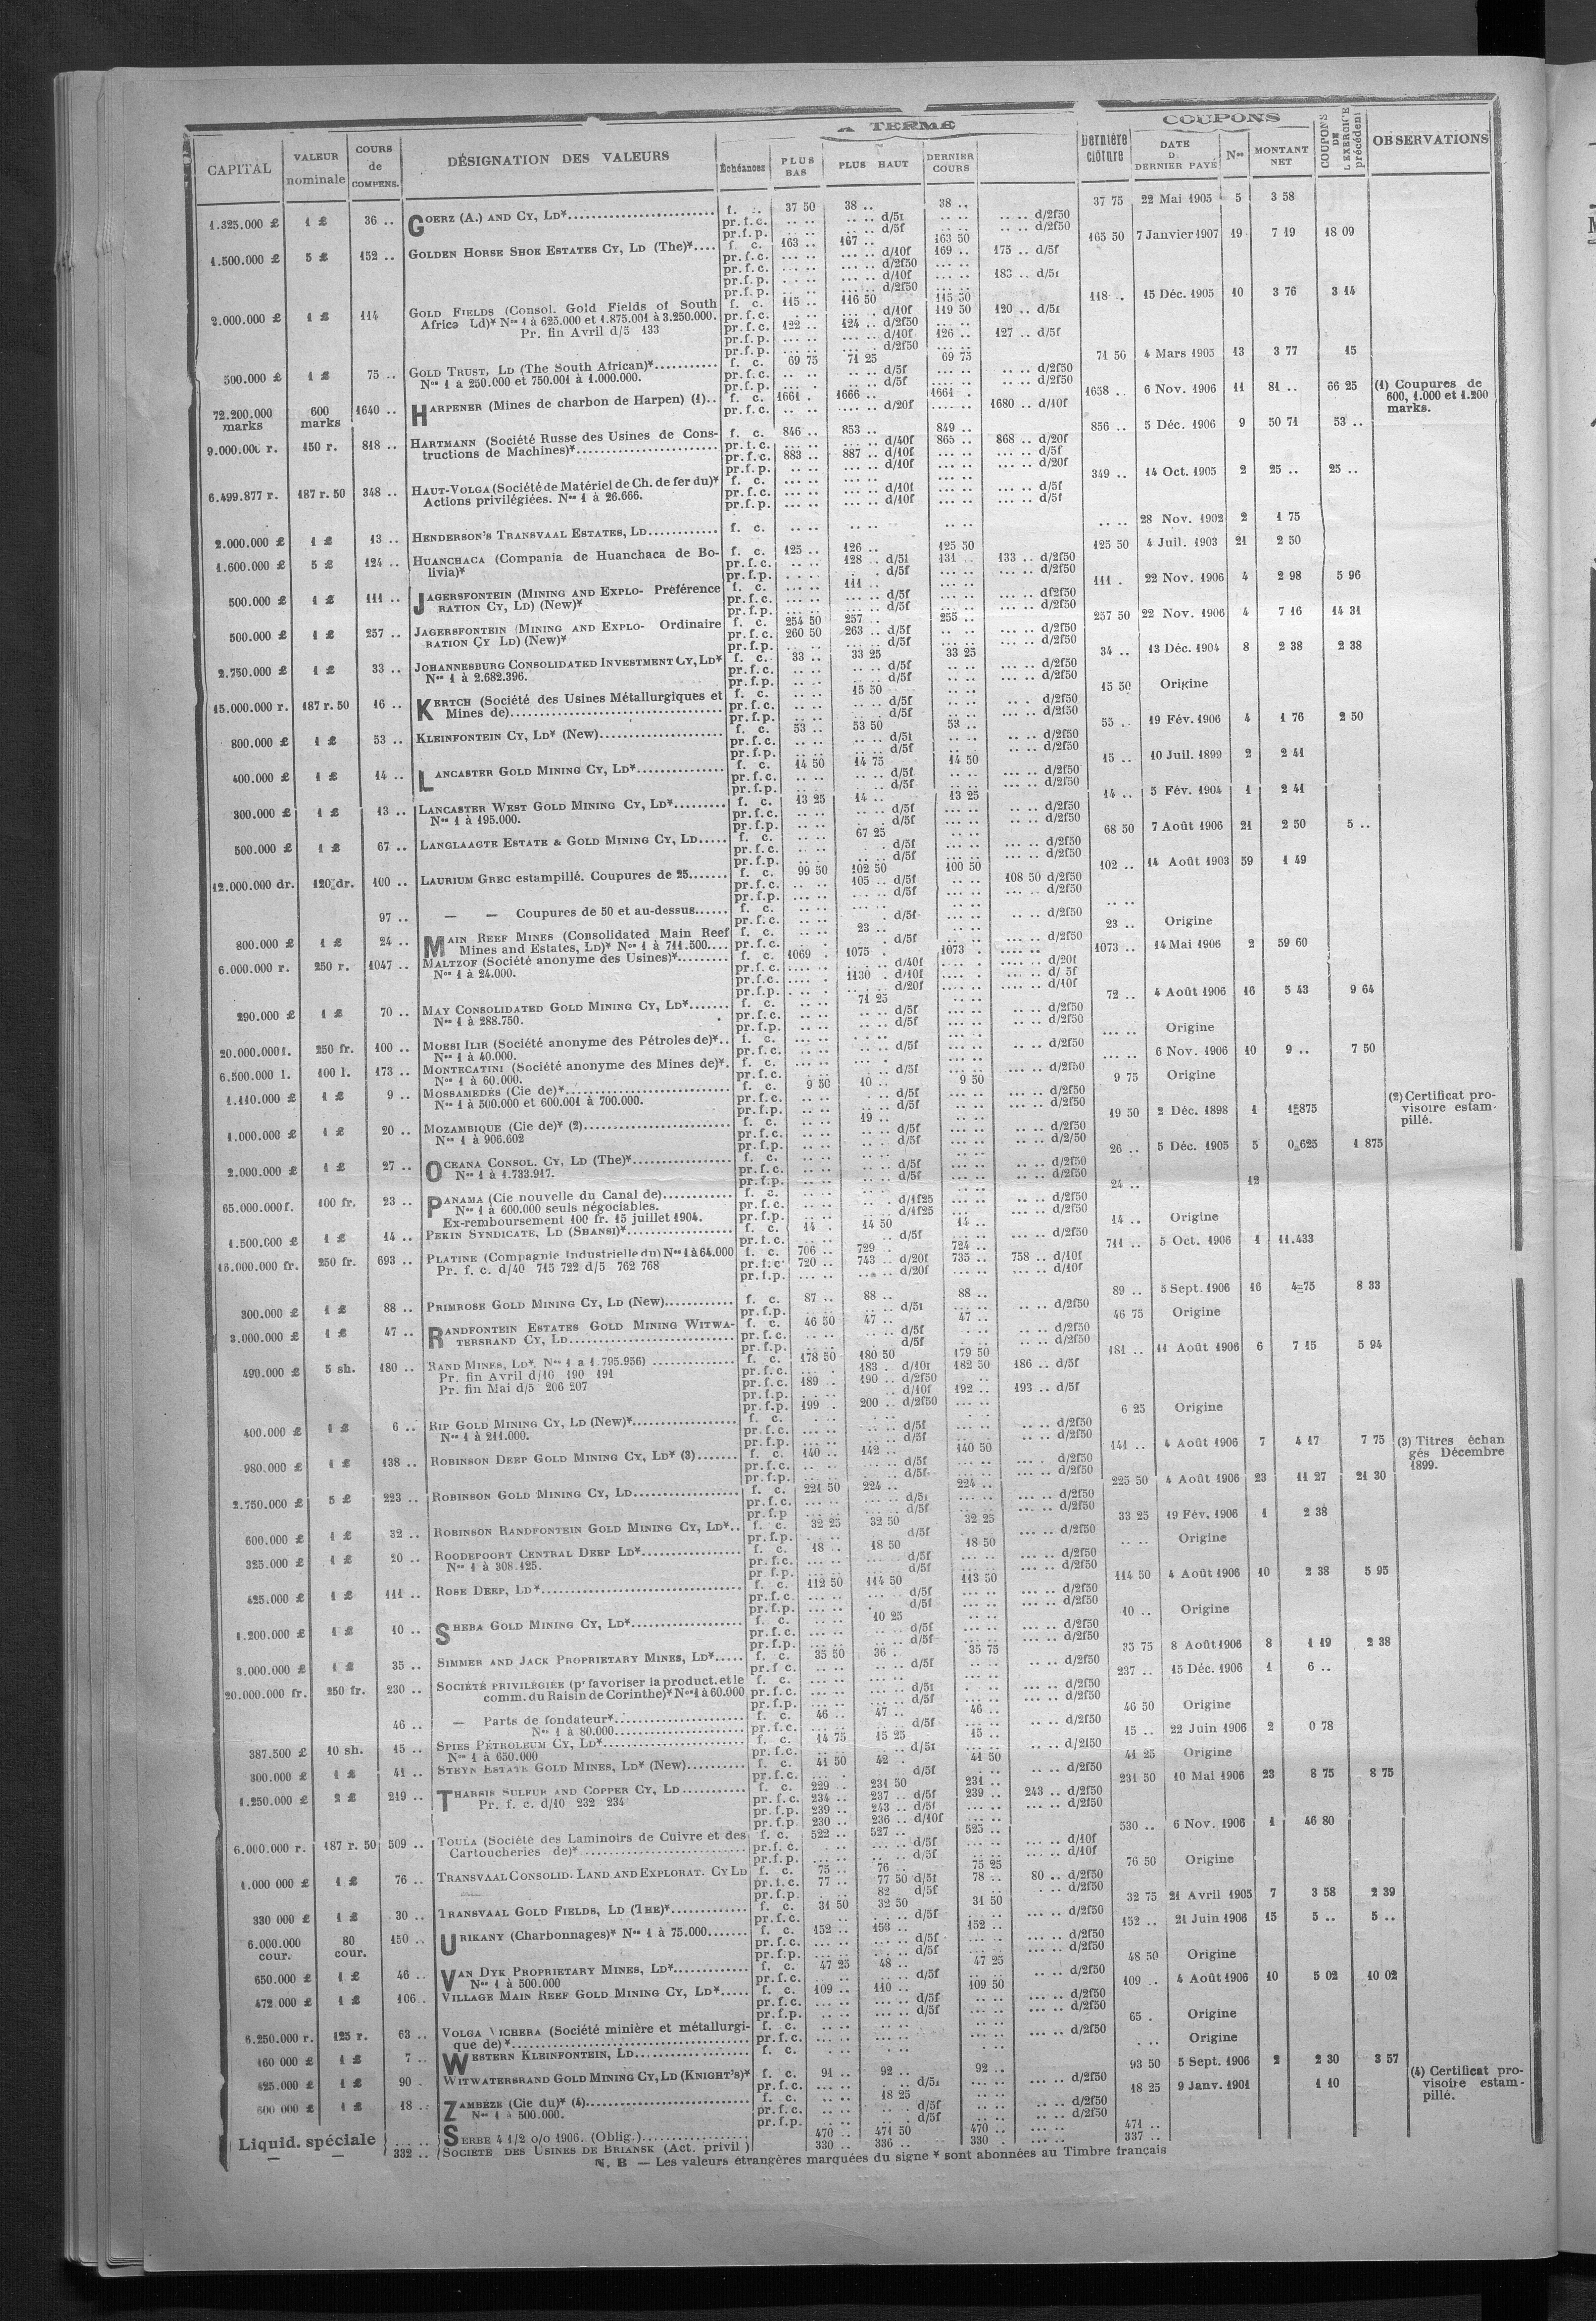 A TERME
COUPONS
CAPITAL
VALEUR nominale
COURS de COMPENS.
DÉSIGNATION DES VALEURS
Échéances
PLUS BAS
PLUS HAUT
DERNIER COURS
Dernière clôture
DATE D. DERNIER PAYÉ
Nos
MONTANT NET
COUPONS DE L'EXERCICE précédent
OBSERVATIONS
1.325.000 £ 1 £ 36 .. GOERZ (A.) AND CY, LD* f. c. 37 50 38 .. 38 .. 37 75 22 Mai 1905 5 3 58
1.500.000 £ 5 £ 152 .. GOLDEN HORSE SHOE ESTATES CY, LD (The)* f. c. 163 .. 167 .. 163 50 165 50 7 Janvier 1907 19 7 19 18 09
pr.f.c. d/10f 169 .. 175 .. d/5f
pr.f.p. d/10f 183 .. d/5f
2.000.000 £ 1 £ 114 GOLD FIELDS (Consol. Gold Fields of South f. c. 115 .. 116 50 115 50 118 .. 15 Déc. 1905 10 3 76 3 14
Africa Ld)* Nos 1 à 625.000 et 1.875.001 à 3.250.000. pr.f.c. d/10f 119 50 120 .. d/5f
Pr. fin Avril d/5 133 pr.f.c. 122 .. 124 .. d/2f50
pr.f.p. d/10f 126 .. 127 .. d/5f
500.000 £ 1 £ 75 .. GOLD TRUST, LD (The South African)* f. c. 69 75 71 25 69 75 71 50 4 Mars 1905 13 3 77 15
Nos 1 à 250.000 et 750.001 à 1.000.000.
72.200.000 marks 600 marks 1640 .. HARPENER (Mines de charbon de Harpen) (1).. f. c. 1661 . 1666 .. 1661 . 1658 .. 6 Nov. 1906 11 81 .. 66 25 (1) Coupures de 600, 1.000 et 1.200 marks.
pr.f.c. d/20f 1680 .. d/10f
9.000.000 r. 150 r. 818 .. HARTMANN (Société Russe des Usines de Cons- f. c. 846 .. 853 .. 849 .. 856 .. 5 Déc. 1906 9 50 71 53 ..
tructions de Machines)* pr.f.c. d/40f 865 .. 868 .. d/20f
pr.f.c. 883 .. 887 .. d/10f d/5f
pr.f.p. d/10f d/20f
6.499.877 r. 187 r. 50 348 .. HAUT-VOLGA (Société de Matériel de Ch. de fer du)* f. c. 349 .. 14 Oct. 1905 2 25 .. 25 ..
Actions privilégiées. Nos 1 à 26.666. pr.f.c. d/10f d/5f
2.000.000 £ 1 £ 13 .. HENDERSON'S TRANSVAAL ESTATES, LD f. c. 28 Nov. 1902 2 1 75
1.600.000 £ 5 £ 124 .. HUANCHACA (Compania de Huanchaca de Bo- f. c. 125 .. 126 .. 125 50 125 50 4 Juil. 1903 21 2 50
livia)* pr.f.c. 128 .. d/5f 131 .. 133 .. d/2f50
500.000 £ 1 £ 111 .. JAGERSFONTEIN (MINING AND EXPLO- Préférence f. c. 111 .. 111 . 22 Nov. 1906 4 2 98 5 96
RATION CY, LD) (New)* pr.f.c. d/5f d/2f50
500.000 £ 1 £ 257 .. JAGERSFONTEIN (MINING AND EXPLO- Ordinaire f. c. 254 50 257 .. 255 .. 257 50 22 Nov. 1906 4 7 16 14 31
RATION CY LD) (New)* pr.f.c. 260 50 263 .. d/5f d/2f50
2.750.000 £ 1 £ 33 .. JOHANNESBURG CONSOLIDATED INVESTMENT CY, LD* f. c. 33 .. 33 25 33 25 34 .. 13 Déc. 1904 8 2 38 2 38
Nos 1 à 2.682.396. pr.f.c. d/5f d/2f50
15.000.000 r. 187 r. 50 16 .. KERTCH (Société des Usines Métallurgiques et f. c. 15 50 15 50 Origine
Mines de) pr.f.c. d/5f d/2f50
800.000 £ 1 £ 53 .. KLEINFONTEIN CY, LD* (New) f. c. 53 .. 53 50 53 .. 55 .. 19 Fév. 1906 4 1 76 2 50
400.000 £ 1 £ 14 .. LANCASTER GOLD MINING CY, LD* f. c. 14 50 14 75 14 50 15 .. 10 Juil. 1899 2 2 41
300.000 £ 1 £ 13 .. LANCASTER WEST GOLD MINING CY, LD* f. c. 13 25 14 .. 13 25 14 .. 5 Fév. 1904 1 2 41
Nos 1 à 195.000.
500.000 £ 1 £ 67 .. LANGLAAGTE ESTATE & GOLD MINING CY, LD f. c. 67 25 68 50 7 Août 1906 21 2 50 5 ..
12.000.000 dr. 120 dr. 100 .. LAURIUM GREC estampillé. Coupures de 25 f. c. 99 50 102 50 100 50 102 .. 14 Août 1903 59 1 49
pr.f.c. 105 .. d/5f 108 50 d/2f50
97 .. — — Coupures de 50 et au-dessus f. c.
800.000 £ 1 £ 24 .. MAIN REEF MINES (Consolidated Main Reef f. c. 23 .. 23 .. Origine
Mines and Estates, LD)* Nos 1 à 711.500 pr.f.c. d/5f d/2f50
6.000.000 r. 250 r. 1047 .. MALTZOF (Société anonyme des Usines)* f. c. 1069 . 1075 . 1073 . 1073 .. 14 Mai 1906 2 59 60
Nos 1 à 24.000. pr.f.c. d/40f d/20f
pr.f.c. 1130 . d/10f d/ 5f
pr.f.p. d/20f d/10f
290.000 £ 1 £ 70 .. MAY CONSOLIDATED GOLD MINING CY, LD* f. c. 71 25 72 .. 4 Août 1906 16 5 43 9 64
Nos 1 à 288.750.
20.000.000 f. 250 fr. 100 .. MOESI ILIR (Société anonyme des Pétroles de)* f. c. Origine
Nos 1 à 40.000. pr.f.c. d/5f d/2f50
6.500.000 l. 100 l. 173 .. MONTECATINI (Société anonyme des Mines de)* f. c. 6 Nov. 1906 10 9 .. 7 50
Nos 1 à 60.000. pr.f.c. d/5f d/2f50
1.110.000 £ 1 £ 9 .. MOSSAMEDÈS (Cie de)* f. c. 9 50 10 .. 9 50 9 75 Origine
Nos 1 à 500.000 et 600.001 à 700.000.
1.000.000 £ 1 £ 20 .. MOZAMBIQUE (Cie de)* (2) f. c. 19 .. 19 50 2 Déc. 1898 1 1=875 (2) Certificat provisoire estampillé.
Nos 1 à 906.602
2.000.000 £ 1 £ 27 .. OCEANA CONSOL. CY, LD (The)* f. c. 26 .. 5 Déc. 1905 5 0=625 1 875
Nos 1 à 1.733.917.
65.000.000 f. 100 fr. 23 .. PANAMA (Cie nouvelle du Canal de) f. c. 24 .. 12
Nos 1 à 600.000 seuls négociables. pr.f.c. d/1f25 d/2f50
Ex-remboursement 100 fr. 15 juillet 1904. pr.f.p. d/1f25 d/2f50
1.500.000 £ 1 £ 14 .. PEKIN SYNDICATE, LD (SHANSI)* f. c. 14 . 14 50 14 .. 14 .. Origine
16.000.000 fr. 250 fr. 693 .. PLATINE (Compagnie Industrielle du) Nos 1 à 64.000 f. c. 706 .. 729 .. 724 .. 711 .. 5 Oct. 1906 1 11.433
Pr. f. c. d/40 715 722 d/5 762 768 pr.f.c. 720 .. 743 .. d/20f 735 .. 758 .. d/10f
pr.f.p. d/20f d/10f
300.000 £ 1 £ 88 .. PRIMROSE GOLD MINING CY, LD (New) f. c. 87 .. 88 .. 88 .. 89 .. 5 Sept. 1906 16 4=75 8 33
3.000.000 £ 1 £ 47 .. RANDFONTEIN ESTATES GOLD MINING WITWA- f. c. 46 50 47 .. 47 .. 46 75 Origine
TERSRAND CY, LD pr.f.c. d/5f d/2f50
490.000 £ 5 sh. 180 .. RAND MINES, LD*. Nos 1 a 1.795.956) f. c. 178 50 180 50 179 50 181 .. 11 Août 1906 6 7 15 5 94
Pr. fin Avril d/10 190 191 pr.f.c. 183 . d/10f 182 50 186 .. d/5f
Pr. fin Mai d/5 206 207 pr.f.c. 189 . 190 .. d/2f50
pr.f.p. d/10f 192 .. 193 .. d/5f
pr.f.p. 199 . 200 .. d/2f50
400.000 £ 1 £ 6 .. RIP GOLD MINING CY, LD (New)* f. c. 6 25 Origine
Nos 1 à 211.000.
980.000 £ 1 £ 138 .. ROBINSON DEEP GOLD MINING CY, LD* (3) f. c. 140 .. 142 .. 140 50 141 .. 4 Août 1906 7 4 17 7 75 (3) Titres échangés Décembre 1899.
2.750.000 £ 5 £ 223 .. ROBINSON GOLD MINING CY, LD f. c. 221 50 224 .. 224 .. 225 50 4 Août 1906 23 11 27 21 30
600.000 £ 1 £ 32 .. ROBINSON RANDFONTEIN GOLD MINING CY, LD* f. c. 32 25 32 50 32 25 33 25 19 Fév. 1906 1 2 38
325.000 £ 1 £ 20 .. ROODEPOORT CENTRAL DEEP LD* f. c. 18 .. 18 50 18 50 Origine
Nos 1 à 308.125.
425.000 £ 1 £ 111 .. ROSE DEEP, LD* f. c. 112 50 114 50 113 50 114 50 4 Août 1906 10 2 38 5 95
1.200.000 £ 1 £ 10 .. SHEBA GOLD MINING CY, LD* f. c. 10 25 10 .. Origine
3.000.000 £ 1 £ 35 .. SIMMER AND JACK PROPRIETARY MINES, LD* f. c. 35 50 36 .. 35 75 35 75 8 Août 1906 8 1 19 2 38
20.000.000 fr. 250 fr. 230 .. SOCIÉTÉ PRIVILÉGIÉE (pr favoriser la product. et le f. c. 237 .. 15 Déc. 1906 1 6 ..
comm. du Raisin de Corinthe)* Nos 1 à 60.000 pr.f.c. d/5f d/2f50
46 .. — Parts de fondateur* f. c. 46 .. 47 .. 46 .. 46 50 Origine
Nos 1 à 80.000 pr.f.c. d/5f d/2f50
387.500 £ 10 sh. 15 .. SPIES PÉTROLEUM CY, LD* f. c. 14 75 15 25 15 .. 15 .. 22 Juin 1906 2 0 78
Nos 1 à 650.000
300.000 £ 1 £ 41 .. STEYN ESTATE GOLD MINES, LD* (New) f. c. 41 50 42 . 41 50 41 25 Origine
1.250.000 £ 2 £ 219 .. THARSIS SULFUR AND COPPER CY, LD f. c. 229 .. 231 50 231 .. 231 50 10 Mai 1906 23 8 75 8 75
Pr. f. c. d/10 232 234 pr.f.c. 234 .. 237 .. d/5f 239 .. 243 .. d/2f50
pr.f.p. 239 .. 243 .. d/5f d/2f50
pr.f.p. 230 .. 236 .. d/10f
6.000.000 r. 187 r. 50 509 .. TOULA (Société des Laminoirs de Cuivre et des f. c. 522 .. 527 .. 525 .. 530 .. 6 Nov. 1906 1 46 80
Cartoucheries de)* pr.f.c. d/5f d/10f
1.000 000 £ 1 £ 76 .. TRANSVAAL CONSOLID. LAND AND EXPLORAT. CY LD f. c. 75 .. 76 .. 75 25 76 50 Origine
pr.f.c. 77 .. 77 50 d/5f 78 .. 80 .. d/2f50
pr.f.p. 82 d/5f d/2f50
330 000 £ 1 £ 30 .. TRANSVAAL GOLD FIELDS, LD (THE)* f. c. 31 50 32 50 31 50 32 75 21 Avril 1905 7 3 58 2 39
6.000.000 cour. 80 cour. 150 .. URIKANY (Charbonnages)* Nos 1 à 75.000 f. c. 152 .. 153 .. 152 .. 152 .. 21 Juin 1906 15 5 .. 5 ..
650.000 £ 1 £ 46 .. VAN DYK PROPRIETARY MINES, LD* f. c. 47 25 48 .. 47 25 48 50 Origine
Nos 1 à 500.000
472.000 £ 1 £ 106 .. VILLAGE MAIN REEF GOLD MINING CY, LD* f. c. 109 .. 110 .. 109 50 109 .. 4 Août 1906 10 5 02 10 02
6.250.000 r. 125 r. 63 .. VOLGA VICHERA (Société minière et métallurgi- f. c. 65 . Origine
que de)* pr.f.c. d/2f50
160 000 £ 1 £ 7 .. WESTERN KLEINFONTEIN, LD f. c. Origine
425.000 £ 1 £ 90 . WITWATERSRAND GOLD MINING CY, LD (KNIGHT'S)* f. c. 91 .. 92 .. 92 .. 93 50 5 Sept. 1906 2 2 30 3 57
600 000 £ 1 £ 18 .. ZAMBÈZE (Cie du)* (4) f. c. 18 25 18 25 9 Janv. 1901 1 10 (4) Certificat provisoire estampillé.
Nos 1 à 500.000.
Liquid. spéciale SERBE 4 1/2 o/o 1906. (Oblig.) 470 .. 471 50 470 .. 471 ..
— — 332 .. SOCIETE DES USINES DE BRIANSK (Act. privil) 330 .. 336 .. 330 . 337 ..
N. B — Les valeurs étrangères marquées du signe * sont abonnées au Timbre français